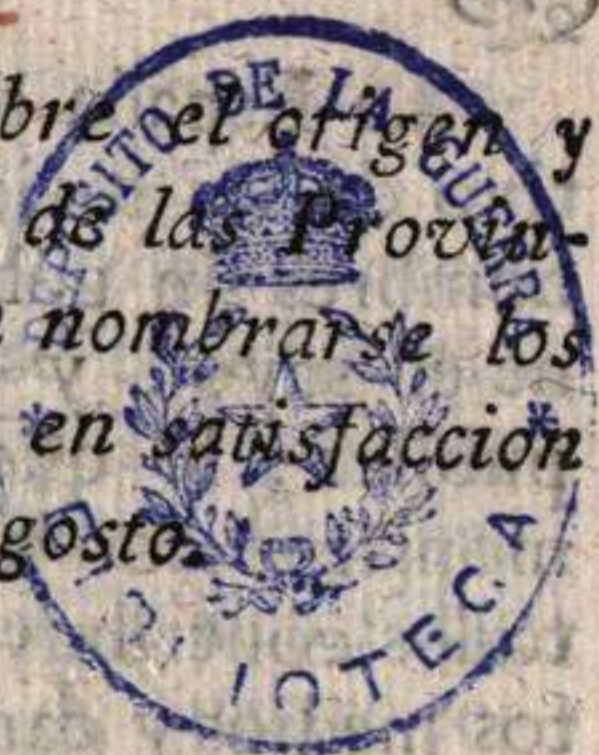 bre el origen y
de las Provin-
nombrarse los
en satisfaccion
gosto.
DEPOSITO DE LA GUERRA
* *
BIBLIOTECA